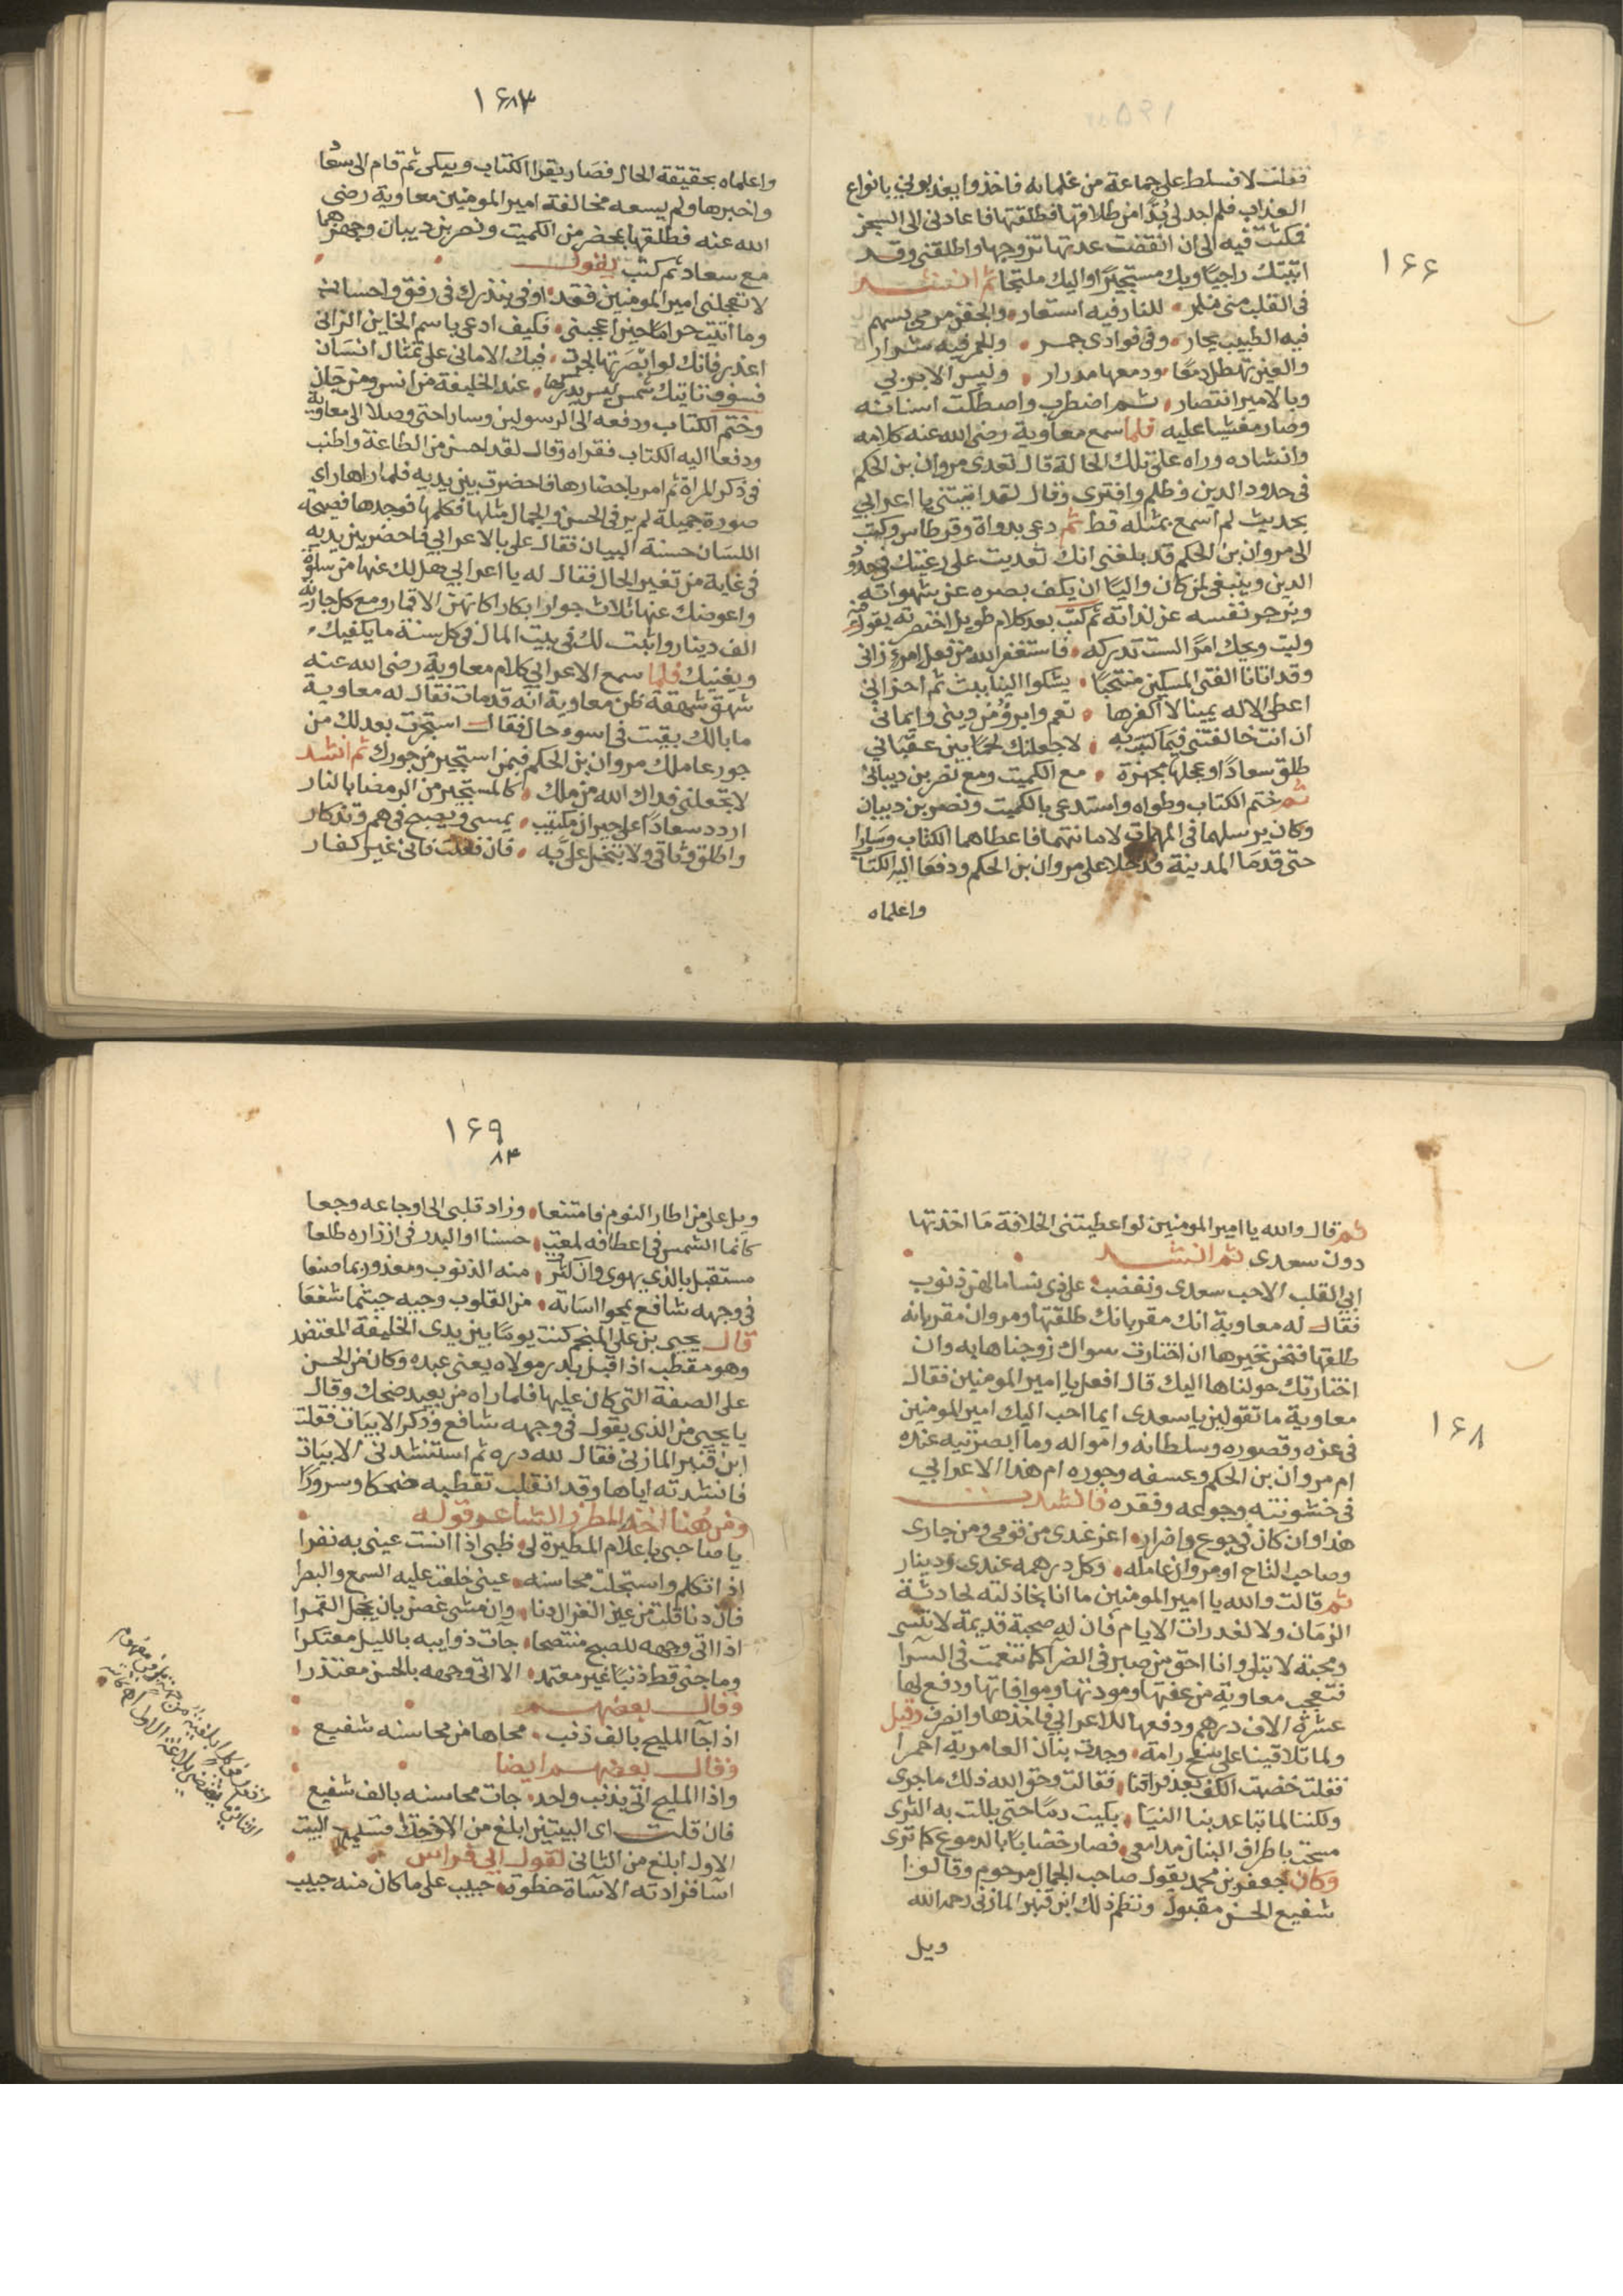 ١۶۶
فقلت لا فسلط علي جماعة من غلمانه فاخذوا يعذبوني بانواع
العذاب فلم اجد لي بدًّا من طلاقها فطلقتها فاعادني الى السجن
فمكثت فيه الى ان انقضت عدتها تزوجها واطلقني وقد
اتيتك راجيًا وبك مستجيرًا واليك ملتجا ثم انشد
في القلب مني نار • للنار فيه استعار • والجفن مرمي بسهم
فيه الطبيب يحار • وفي فوادي جمر • وللجمر فيه شرار
والعين تهطل دمعًا • ودمعها مدرار • وليس الا بربي
وبالامير انتصار • ثم اضطرب واصطكت اسنانه
وصار مغشيا عليه فلما سمع معاوية رضي الله عنه كلامه
وانشاده وراه على تلك الحالة قال تعدى مروان بن الحكم
في حدود الدين وظلم وافترى وقال لقد اتيتني يا اعرابي
بحديث لم اسمع بمثله قط ثم دعى بدواة وقرطاس وكتب
الى مروان بن الحكم قد بلغني انك تعديت على رعيتك في حدود
الدين وينبغي لمن كان واليًا ان يكف بصره عن شهواته
ويزجر نفسه عن لذاته ثم كتب بعد كلام طويل اختصرته يقول
وليت ويحك امرًا لست تدركه • فاستغفر الله من فعل امرئ زاني
وقد اتانا الفتى المسكين منتحبًا • يشكوا الينا ببث ثم احزاني
اعطي الاله يمينا لا اكفرها • نعم وابرؤ من ديني وايماني
ان انت خالفتني فيما كتبت به • لاجعلنك لحمًا بين عقباني
طلق سعادًا وعجلها مجهزة • مع الكميت ومع نصر بن ديباني
ثم ختم الكتاب وطواه واستدعى بالكميت ونصر بن ديبان
وكان يرسلهما في المهمات لامانتهما فاعطاهما الكتاب وسارا
حتى قدما المدينة فدخلا على مروان بن الحكم ودفعا اليه الكتاب
واعلماه
١۶
٨٣
واعلماه بحقيقة الحال فصار يقرا الكتاب ويبكي ثم قام الى سعاد
واخبرها ولم يسعه مخالفة امير المومنين معاوية رضي
الله عنه فطلقها بمحضر من الكميت ونصر بن ديبان وجهزهما
مع سعاد ثم كتب يقول
لا تعجلني امير المومنين فقد • اوفي بنذرك في رفق واحساني
وما اتيت حرامًا حين اعجبني • فكيف ادعى باسم الخاين الزاني
اعذر فانك لو ابصرتها لجرت • فيك الاماني على تمثال انسان
فسوف تاتيك شمس ليس يدركها • عند الخليفة من انس ومن جان
وختم الكتاب ودفعه الى الرسولين وسارا حتى وصلا الى معاوية
ودفعا اليه الكتاب فقراه وقال لقد احسن من الطاعة واطنب
في ذكر المراة ثم امر باحضارها فاحضرت بين يديه فلما راها راى
صورة جميلة لم ير في الحسن والجمال مثلها فكلمها فوجدها فصيحة
اللسان حسنة البيان فقال علي بالاعرابي فاحضر بين يديه
في غاية من تغير الحال فقال له يا اعرابي هل لك عنها من سلوة
واعوضك عنها ثلاث جوار ابكار كانهن الاقمار ومع كل جارية
الف دينار واثبت لك في بيت المال في كل سنة ما يكفيك
ويغنيك فلما سمع الاعرابي كلام معاوية رضي الله عنه
شهق شهقة ظن معاوية انه قد مات فقال له معاوية
ما بالك بقيت في اسوء حال فقال استجرت بعدلك من
جور عاملك مروان بن الحكم فبمن استجير من جورك ثم انشد
لا تجعلني فداك الله من ملك • كالمستجير من الرمضا بالنار
اردد سعادًا على حيران مكتيب • يمسي ويصبح في هم وتذكار
واطلق وثاقي ولا تبخل علي به • فان فعلت فاني غير كفار
١۶٨
ثم قال والله يا امير المومنين لو اعطيتني الخلافة ما اخذتها
دون سعدى ثم انشد
ابى القلب الا حب سعدى وبغضت • علي نسا ما لهن ذنوب
فقال له معاوية انك مقر بانك طلقتها ومروان مقر بانه
طلقها فنحن نخيرها ان اختارت سواك زوجناها به وان
اختارتك حولناها اليك قال افعل يا امير المومنين فقال
معاوية ما تقولين يا سعدى ايما احب اليك امير المومنين
في عزه وقصوره وسلطانه وامواله وما ابصرتيه عنده
ام مروان بن الحكم وعسفه وجوره ام هذا الاعرابي
في خشونته وجوعه وفقره فانشدت
هذا وان كان في جوع واضرار • اعز عندي من قومي ومن جاري
وصاحب التاج او مروان عامله • وكل درهمه عندي ودينار
ثم قالت والله يا امير المومنين ما انا بخاذلته لحادثة
الزمان ولا لغدرات الايام فان له صحبة قديمة لا تنسى
ومحبة لا تبلى وانا احق من صبر في الضرا كما تنعمت في السرا
فتعجب معاوية من عفتها ومودتها وموافاتها ودفع لها
عشرة الاف درهم ودفعها للاعرابي فاخذها وانصرف وقيل
ولما تلاقينا على سفح رامة • وجدت بنان العامرية احمرا
فقلت خضبت الكف بعد فراقنا • فقالت وحق الله ذلك ما جرى
ولكننا لما تباعد بنا النيا • بكيت دمًا حتى بللت به الثرى
مسحت باطراف البنان مدامعي • فصار خضابًا بالدموع كما ترى
وكان جعفر بن محمد يقول صاحب الجمال مرحوم وقالوا
شفيع الحسن مقبول ونظم ذلك ابن قنبر المازني رحمه الله
ويل
١۶٩
٨۴
ويل علي من اطار النوم فامتنعا • وزاد قلبي الى اوجاعه وجعا
كانما الشمس في اعطافه لمعت • حسنا او البدر في ازراره طلعا
مستقبل بالذي يهوى وان كثرت • منه الذنوب ومعذور بما صنعا
في وجهه شافع يمحوا اساته • من القلوب وجيه حيثما شفعا
قال يحيى بن علي المنجم كنت يومًا بين يدي الخليفة المعتضد
وهو مقطب اذ اقبل بدر مولاه يعني عبده وكان من الحسن
على الصفة التي كان عليها فلما راه من بعيد ضحك وقال
يا يحيى من الذي يقول في وجهه شافع وذكر الابيات فقلت
ابن قنبر المازني فقال لله دره ثم استنشدني الابيات
فانشدته اياها وقد انقلب تقطيبه ضحكا وسرورًا
ومن هنا اخذ المطرز الشاعر قوله
يا صاحبي باعلام المطيرة لي • ظبي اذا انست عيني به نفرا
اذا تكلم واستجلت محاسنه • عيني خلعت عليه السمع والبصرا
فان دنا قلت من عين الغزال دنا • وان مشى غصن بان يحمل القمرا
اذا اتى وجهه للصبح منتصحا • جات ذوايبه بالليل معتكرا
وما جنى قط ذنبًا غير معتمد • الا اتى وجهه بالحسن معتذرا
وقال بعضهم
اذا جآ المليح بالف ذنب • محاها من محاسنه شفيع
وقال بعضهم ايضا
واذا المليح اتى بذنب واحد • جات محاسنه بالف شفيع
فان قلت اي البيتين ابلغ من الاخر قلت البيت
الاول ابلغ من الثاني لقول ابي فراس
اسا فزادته الاساة حظوة • حبيب على ما كان منه حبيب